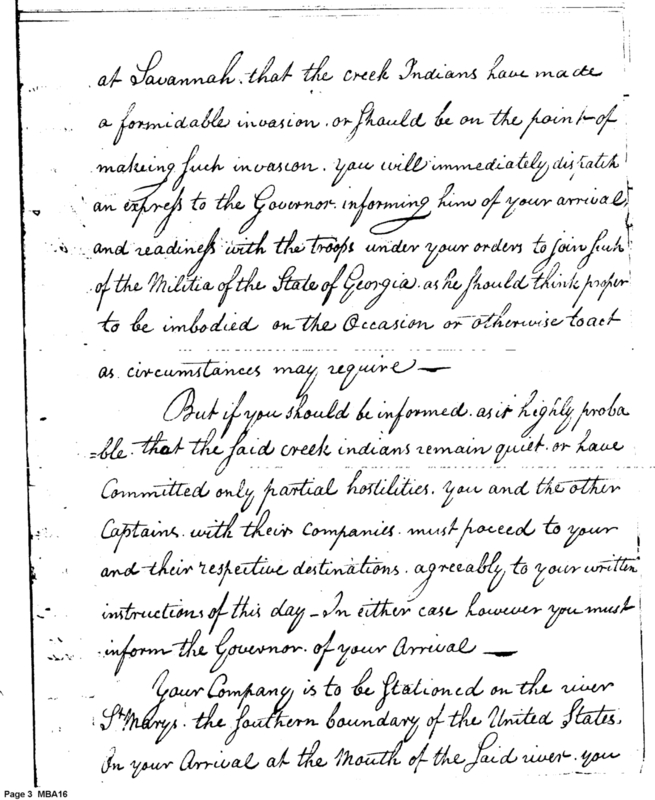 at Savannah. that the creek Indians have made
a formidable invasion. or should be on the point of
makeing such invasion. you will immediately dispatch
an express to the Governor. informing him of your arrival
and readiness with the troops under your orders to join such
of the Militia of the State of Georgia. as he should think proper
to be imbodied on the Occasion or otherwise to act
as circumstances may require —
But if you should be informed. as it highly proba
=ble. that the said creek indians remain quiet. or have
Committed only partial hostilities. you and the other
Captains. with their Companies. must poceed to your
and their respective destinations. agreeably to your written
instructions of this day – In either case however you must
inform the Governor. of your Arrival —
Your Company is to be Stationed on the river
St Marys. the Southern boundary of the United States.
On your Arrival at the Mouth of the Said river. you
Page 3 MBA16